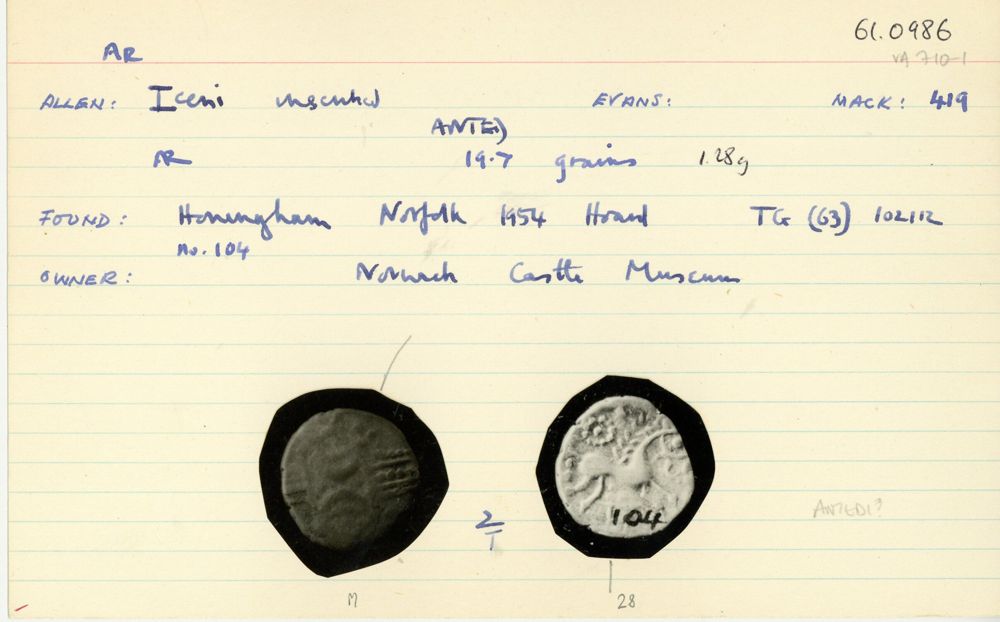 61.0986
AR
VA 710-1
ALLEN: Iceni inscribed EVANS: MACK: 419
ANTED)
AR 19.7 grains 1.28g
FOUND: Honingham Norfolk 1954 Hoard TG (63) 102112
no. 104
OWNER: Norwich Castle Museum
104
2/1
ANTEDI?
M 28